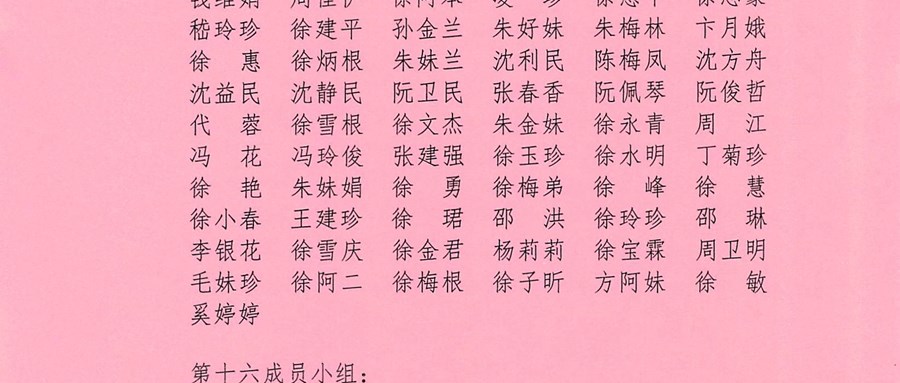 嵇玲珍 徐建平 孙金兰 朱好妹 朱梅林 卞月娥
徐 惠 徐炳根 朱妹兰 沈利民 陈梅凤 沈方舟
沈益民 沈静民 阮卫民 张春香 阮佩琴 阮俊哲
代 蓉 徐雪根 徐文杰 朱金妹 徐永青 周 江
冯 花 冯玲俊 张建强 徐玉珍 徐水明 丁菊珍
徐 艳 朱妹娟 徐 勇 徐梅弟 徐 峰 徐 慧
徐小春 王建珍 徐 珺 邵 洪 徐玲珍 邵 琳
李银花 徐雪庆 徐金君 杨莉莉 徐宝霖 周卫明
毛妹珍 徐阿二 徐梅根 徐子昕 方阿妹 徐 敏
奚婷婷
第十六成员小组：